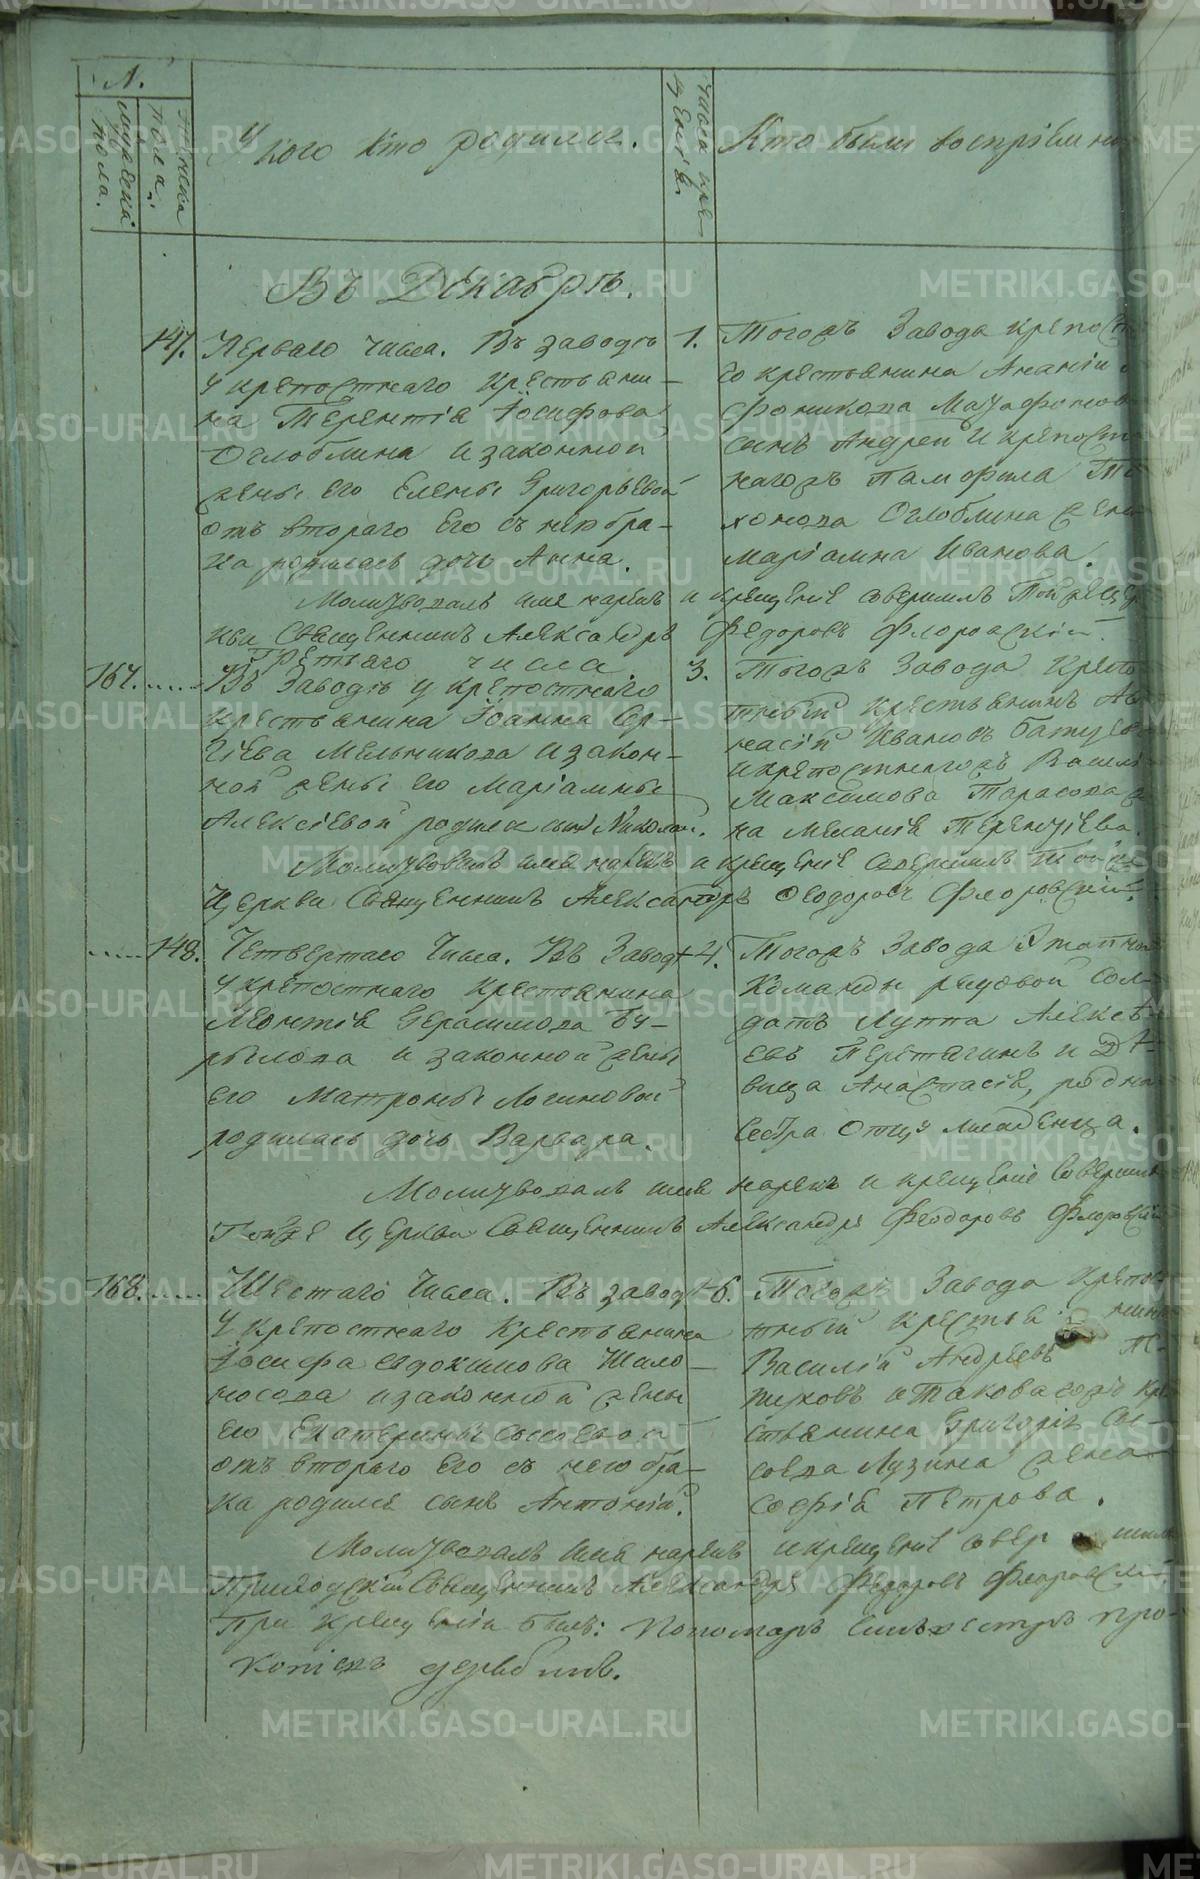 №.
мужеска пола.
женска пола.
У кого кто родился.
Числа крещенія.
Кто были воспріемни
Въ Декабрѣ.
147. Перваго числа. Въ заводѣ 1.
у крепостнаго крестьяни-
на Терентія Іосифова
Оглоблина и законной
жены его Елены Григорьевой
отъ втораго его съ нею бра-
ка родилась дочь Анна.
Тогожъ Завода крепост
го крестьянина Ананіи
сынъ Андрей и крепост
нагожъ Памфила Ти
хонова Оглоблина жена
Маріамна Иванова.
Молитвовалъ имя нарекъ и крещеніе совершилъ Тойже Цер
кви Священникъ Александръ Федоровъ Флоровскій.
Третьяго числа
167. Въ Заводѣ у крепостнаго 3.
крестьянина Іоанна Сер-
гіева Мельникова и закон-
ной жены его Маріамны
Алексіевой родился сынъ Николай.
Тогожъ Завода крепо
стный крестьянинъ Аѳ
насій Ивановъ
и крепостнагожъ Васил
Максимова Тарасова же
на Меланія Терентіева.
Молитвовалъ имя нарекъ и крещеніе совершилъ Тойже
Церкви Священникъ Александръ Феодоровъ Флоровскій.
148. Четвертаго Числа. Въ Заводѣ 4.
у крепостнаго крестьянина
Леонтія Герасимова Бу-
рылова и законной жены
его Матроны Логиновой
родилась дочь Варвара.
Тогожъ Завода Этапной
Команды рядовой Сол-
датъ Луппа Алексѣ-
евъ Перетягинъ и Дѣ-
вица Анастасія, родна
Сестра Отца младенца.
Молитвовалъ имя нарекъ и крещеніе Совершилъ
Тойже Церкви Священникъ Александръ Феодоровъ Флоровскій
168. Шестаго Числа. Въ заводѣ 6.
у крепостнаго Крестьянина
Іосифа Евдокимова Шало-
носова и законной жены
его Екатерины Сысоевой
отъ втораго его съ нею бра-
ка родился сынъ Антоній.
Тогожъ Завода Крепос
тный крестья нинъ
Василій Андреевъ П-
туховъ и таковагожъ кре
стьянина Григорія Сы-
соева Лузина жена
Софія Петрова.
Молитвовалъ имя нарекъ и крещеніе совер шилъ
Приходскій Священникъ Александръ Федоровъ Флоровскій
При крещеніи былъ: Пономарь Сильвестръ Про-
копіевъ Дерябинъ.